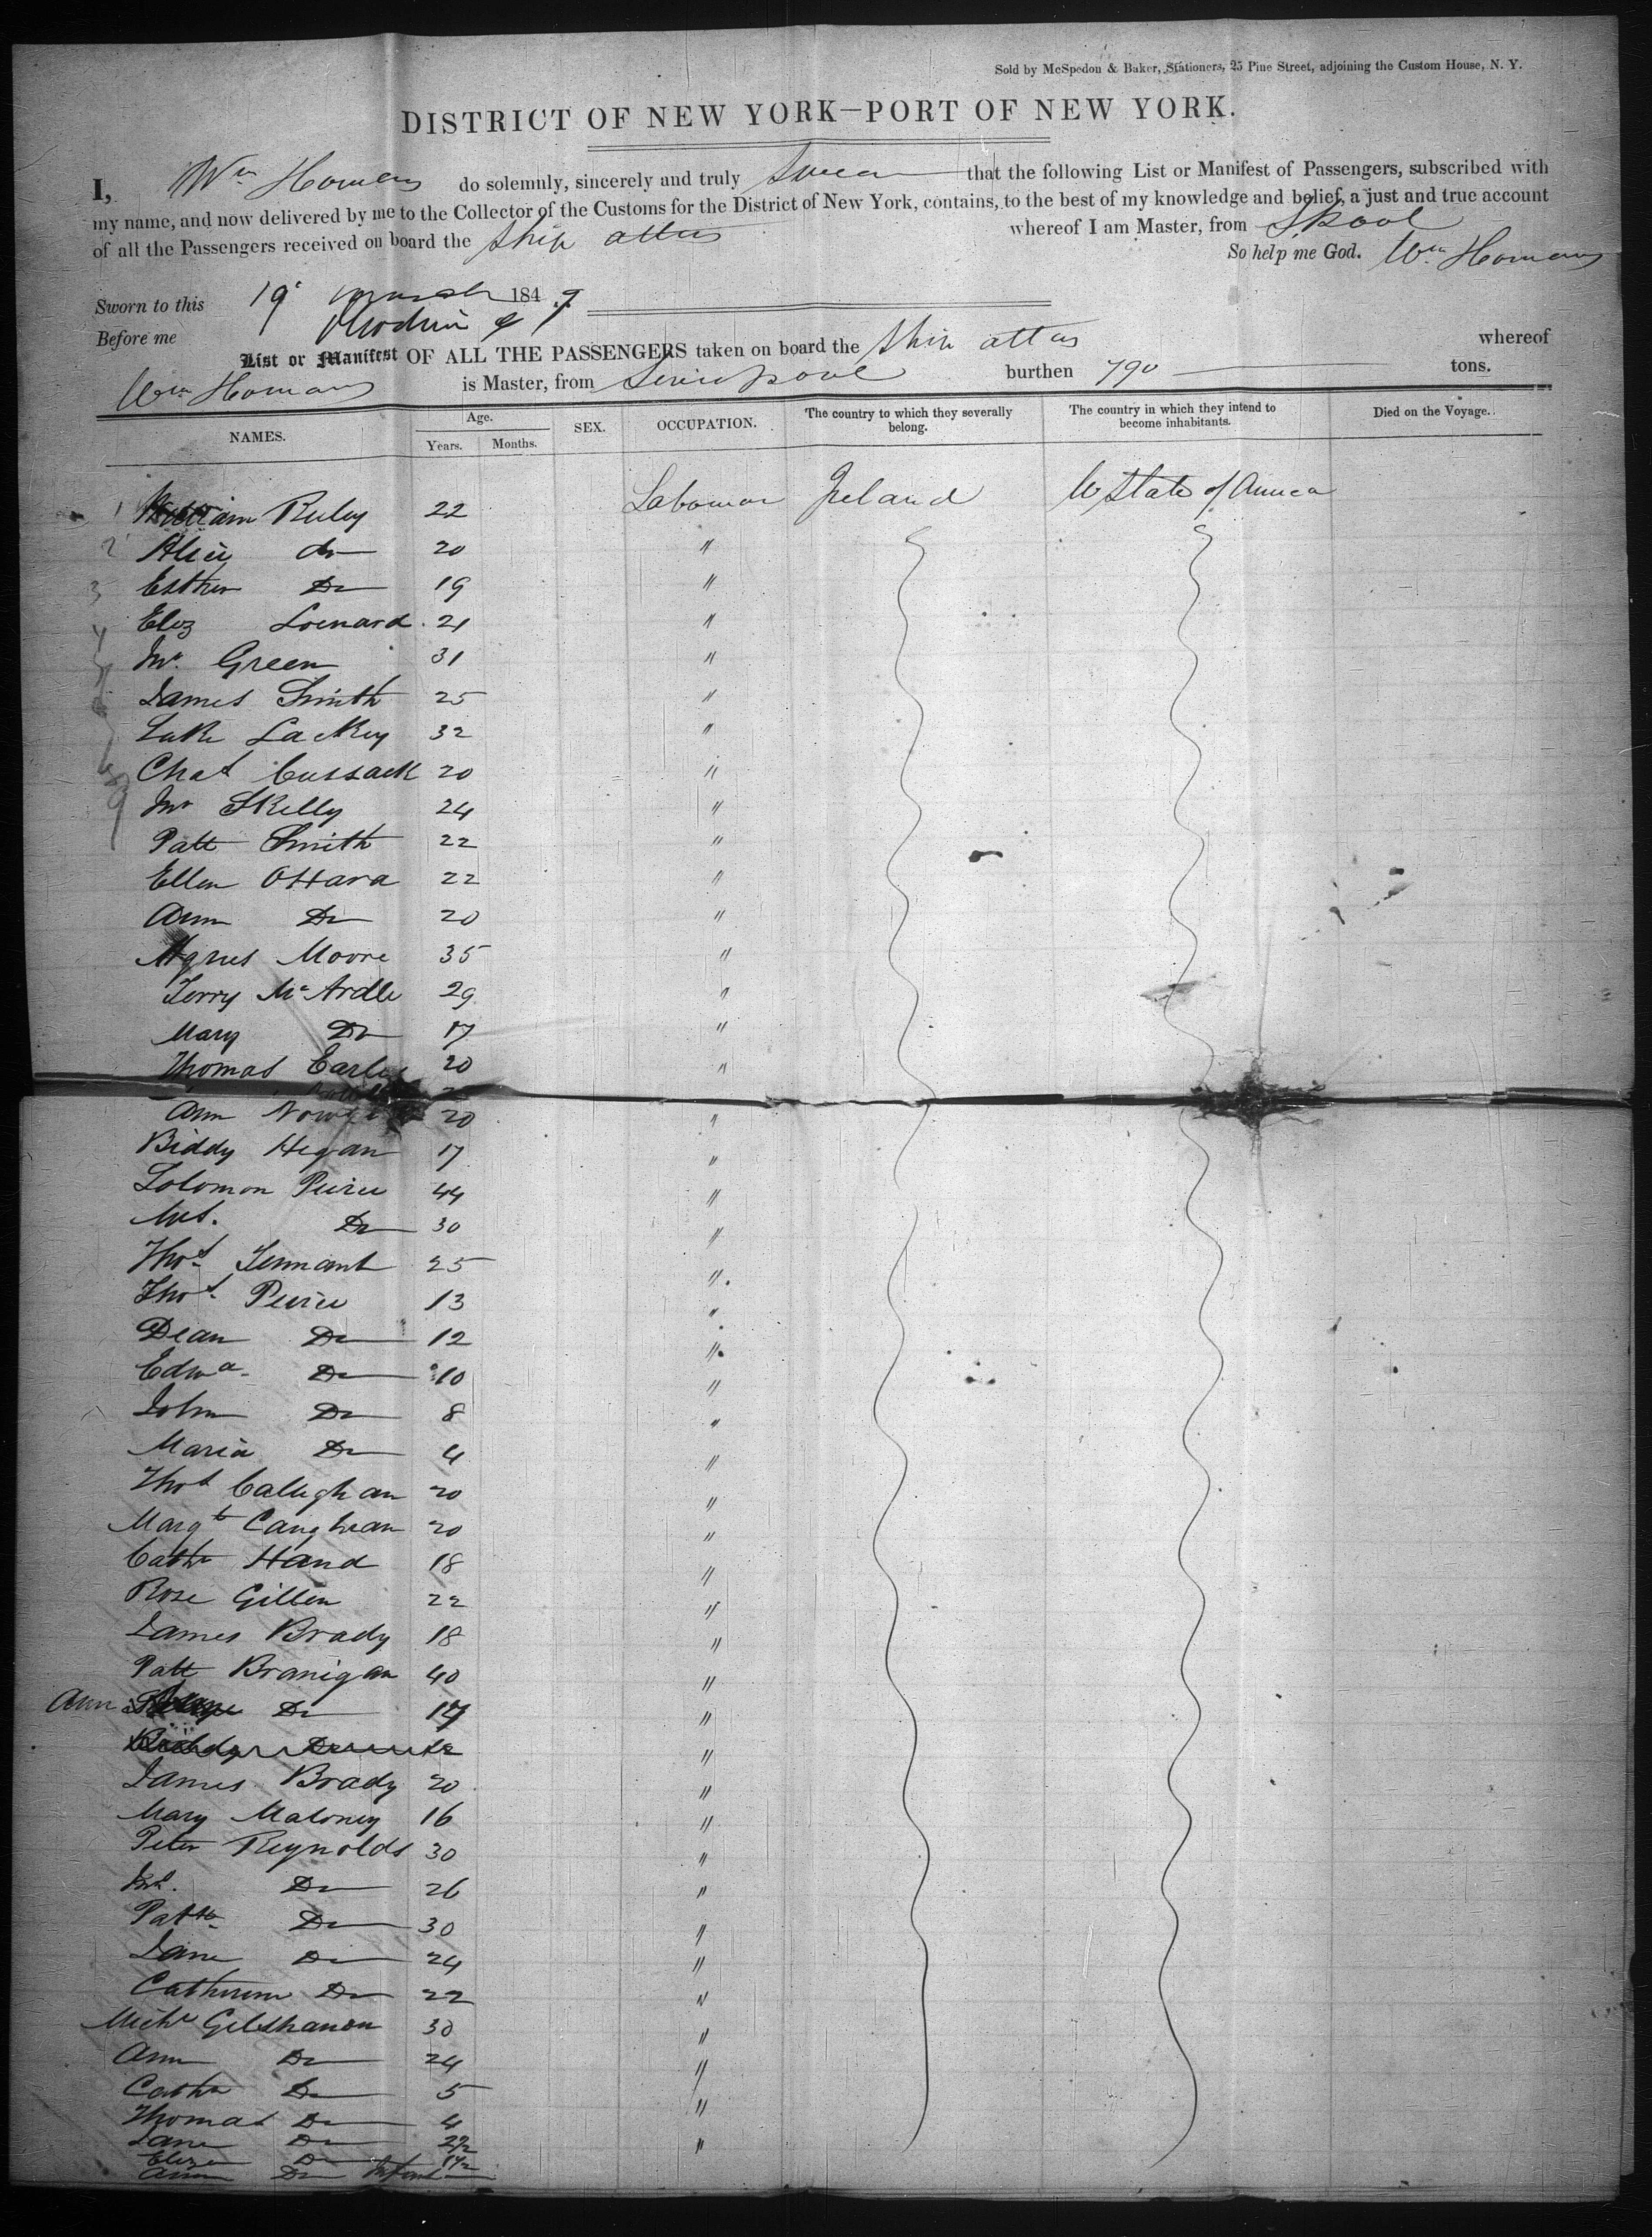 Sold by McSpedon & Baker, Stationers, 25 Pine Street, adjoining the Custom House, N. Y.
DISTRICT OF NEW YORK—PORT OF NEW YORK.
I, Wm Homans do solemnly, sincerely and truly Swear that the following List or Manifest of Passengers, subscribed with
my name, and now delivered by me to the Collector of the Customs for the District of New York, contains, to the best of my knowledge and belief, a just and true account
of all the Passengers received on board the Ship attus whereof I am Master, from Lpool
So help me God. Wm Homans
Sworn to this 19 184
Before me
List or Manifest OF ALL THE PASSENGERS taken on board the Ship attus whereof
Wm Homans is Master, from Liverpool burthen 790 tons.
NAMES. Age. Years. Months. SEX. OCCUPATION. The country to which they severally belong. The country in which they intend to become inhabitants. Died on the Voyage.
1 William Riley 22 Labourer Ireland U State of America
2 Alice do 20 "
3 Esther Do 19 "
4 Eliz Loenard 21 "
Green 31 "
James Smith 25 "
Luke Lackey 32 "
Chas Cussack 20 "
9 Skelly 24 "
Patt Smith 22 "
Ellen OHara 22 "
Ann Do 20 "
Agnes Moore 35 "
Terry McArdle 29 "
Mary Do 17 "
Thomas Earley 20 "
Ann 20 "
Biddy Hegan 17 "
Solomon Peirce 44 "
Mrs. Do 30 "
Thos Tennant 25 "
Thos Peirce 13 "
Dean Do 12 "
Edwd Do 10 "
John Do 8 "
Maria Do 4 "
Thos Calleghan 20 "
Margt Caughran 20 "
Cathe Hand 18 "
Rose Gillen 22 "
James Brady 18 "
Patt Branigan 40 "
Ann Do 17 "
Biddy Do 12 "
James Brady 20 "
Mary Maloney 16 "
Peter Reynolds 30 "
Do 26 "
Patt Do 30 "
Jane Do 24 "
Catherine Do 22 "
Michl Gilshanon 30 "
Ann Do 24 "
Cathe Do 5 "
Thomas Do 4 "
Jane Do 2½ "
Eliza Do 1½
Ann Do Infant